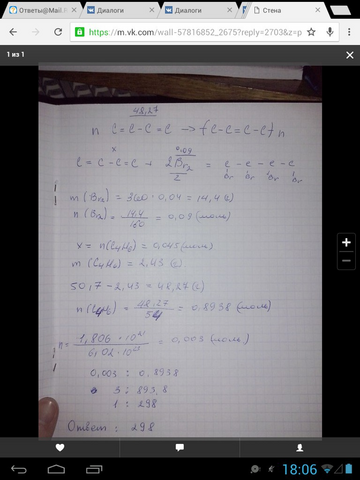 Ответы@Mail.R
Диалоги
Диалоги
Стена
https://m.vk.com/wall-57816852_2675?reply=2703&z=p
1 из 1
48,27
n C=C-C=C → (-C-C=C-C-)n
x 0,09
C=C-C=C + 2Br2 = C-C-C-C
2 Br Br Br Br
m(Br2) = 360·0,04 = 14,4(г)
n(Br2) = 14,4/160 = 0,09 (моль)
x = n(C4H6) = 0,045(моль)
m(C4H6) = 2,43 (г)
50,7-2,43 = 48,27(г)
n(C4H6) = 48,27/54 = 0,8938 (моль)
n = 1,806·10²¹/6,02·10²³ = 0,003 (моль)
0,003 : 0,8938
3 : 893,8
1 : 298
Ответ : 298
18:06